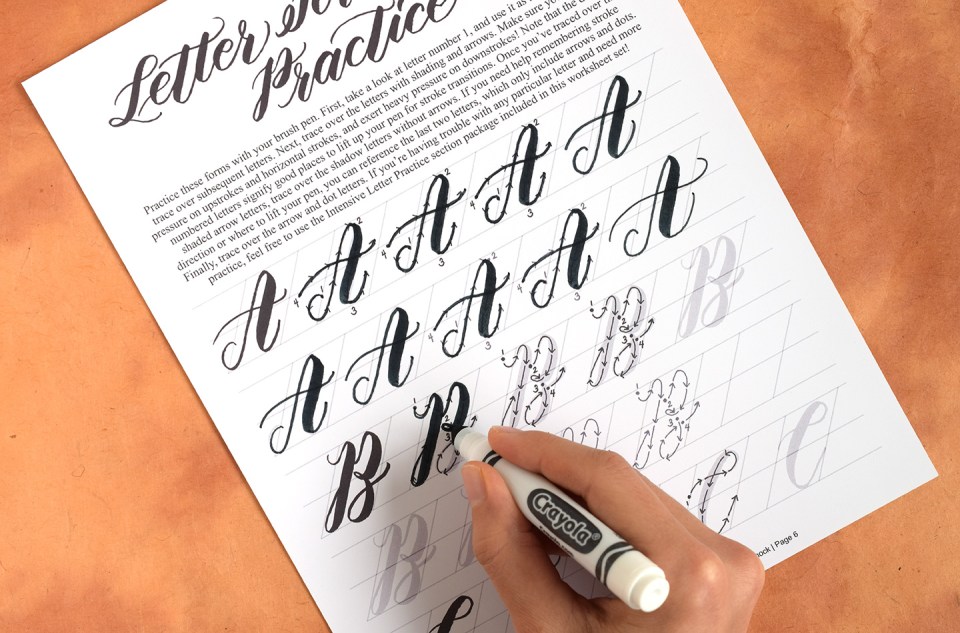 Letter
Practice
Practice these forms with your brush pen. First, take a look at letter number 1, and use it as
trace over subsequent letters. Next, trace over the letters with shading and arrows. Make sure yo
pressure on upstrokes and horizontal strokes, and exert heavy pressure on downstrokes! Note that the
numbered letters signify good places to lift up your pen for stroke transitions. Once you've traced over the
shaded arrow letters, trace over the shadow letters without arrows. If you need help remembering stroke
direction or where to lift your pen, you can reference the last two letters, which only include arrows and dots.
Finally, trace over the arrow and dot letters. If you're having trouble with any particular letter and need more
practice, feel free to use the Intensive Letter Practice section package included in this worksheet set!
A A A A A
A A A A A
B B B B B
B
C C
Crayola
ook | Page 6